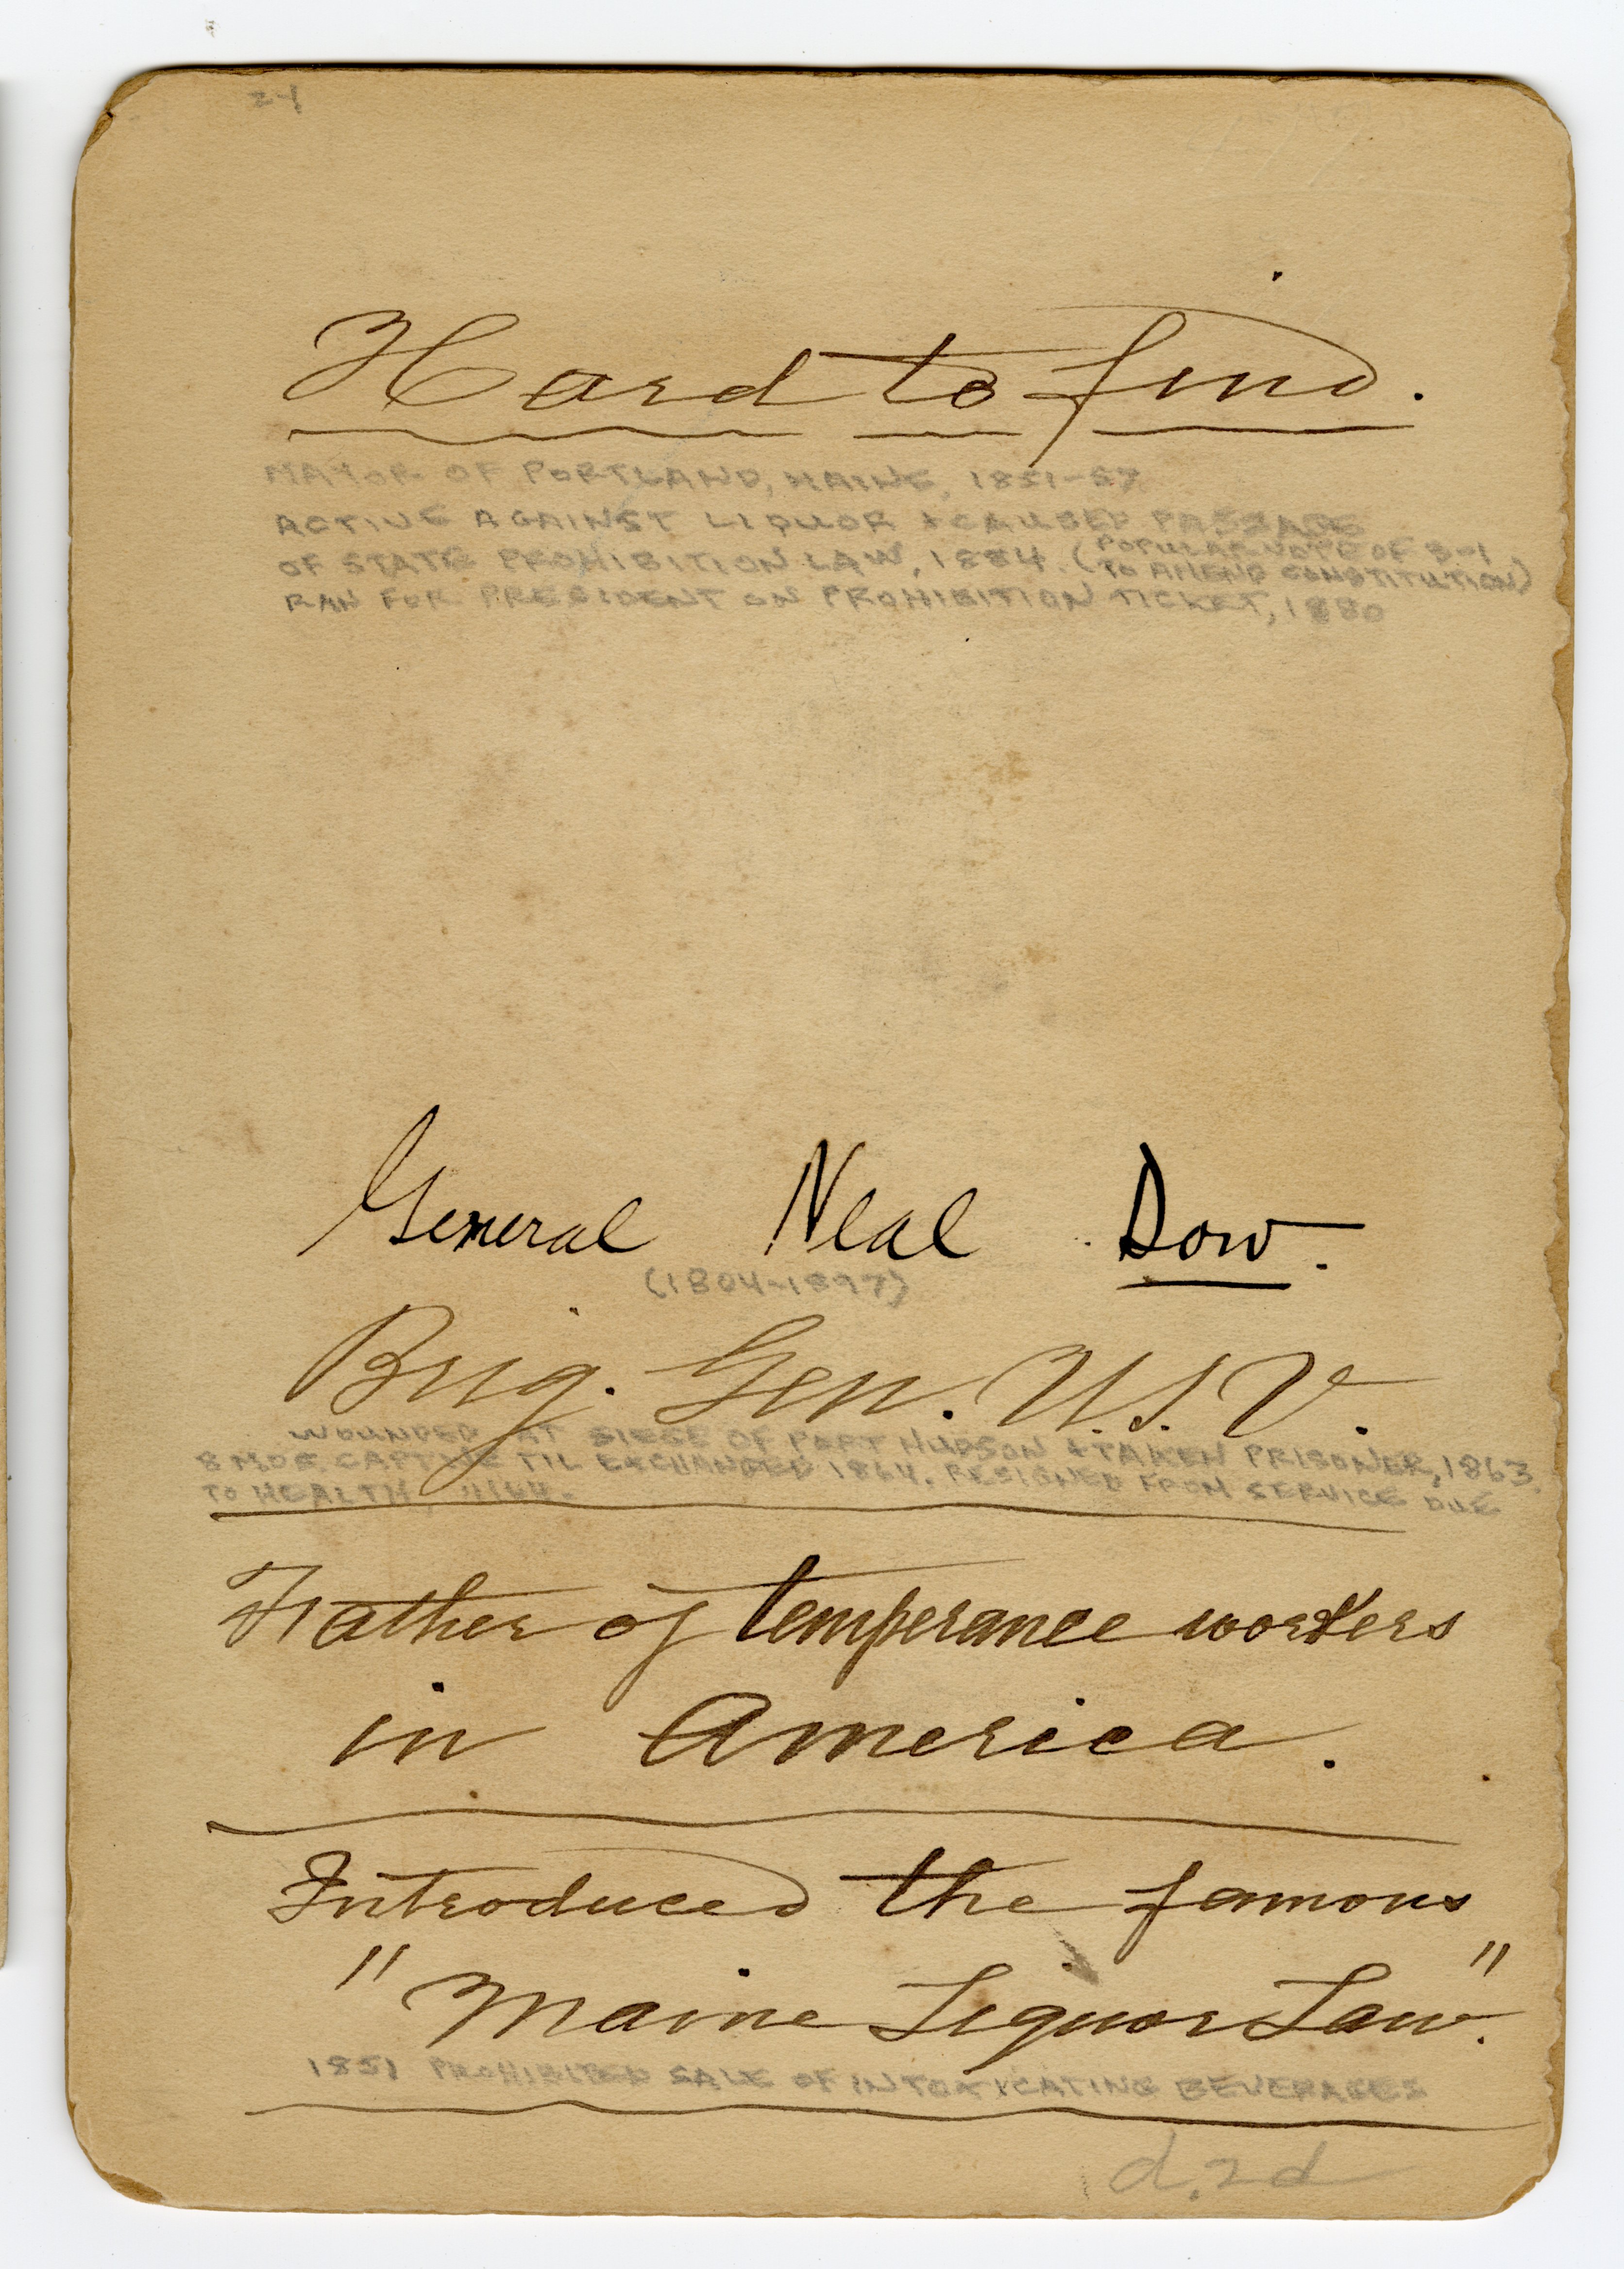 24
Hard to find.
MAYOR OF PORTLAND, MAINE, 1851-57
ACTIVE AGAINST LIQUOR & CAUSED PASSAGE
OF STATE PROHIBITION LAW, 1884. (POPULAR VOTE OF 3-1
TO AMEND CONSTITUTION)
RAN FOR PRESIDENT ON PROHIBITION TICKET, 1880
General Neal Dow.
(1804-1897)
Brig. Gen. U.S.V.
WOUNDED AT SIEGE OF PORT HUDSON & TAKEN PRISONER, 1863.
8 MOS. CAPTIVE TIL EXCHANGED 1864. RESIGNED FROM SERVICE DUE
TO HEALTH, 11/64.
Father of temperance workers
in America.
Introduced the famous
"Maine Liquor Law."
1851 PROHIBITED SALE OF INTOXICATING BEVERAGES